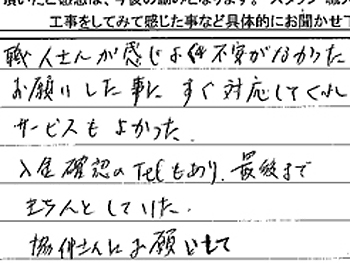 工事をしてみて感じた事など具体的にお聞かせ下
職人さんが感じよく不安がなかった
お願いした事に すぐ対応してくれ
サービスもよかった.
入金確認のTelもあり、最後まで
きちんとしていた.
さんにお願いして